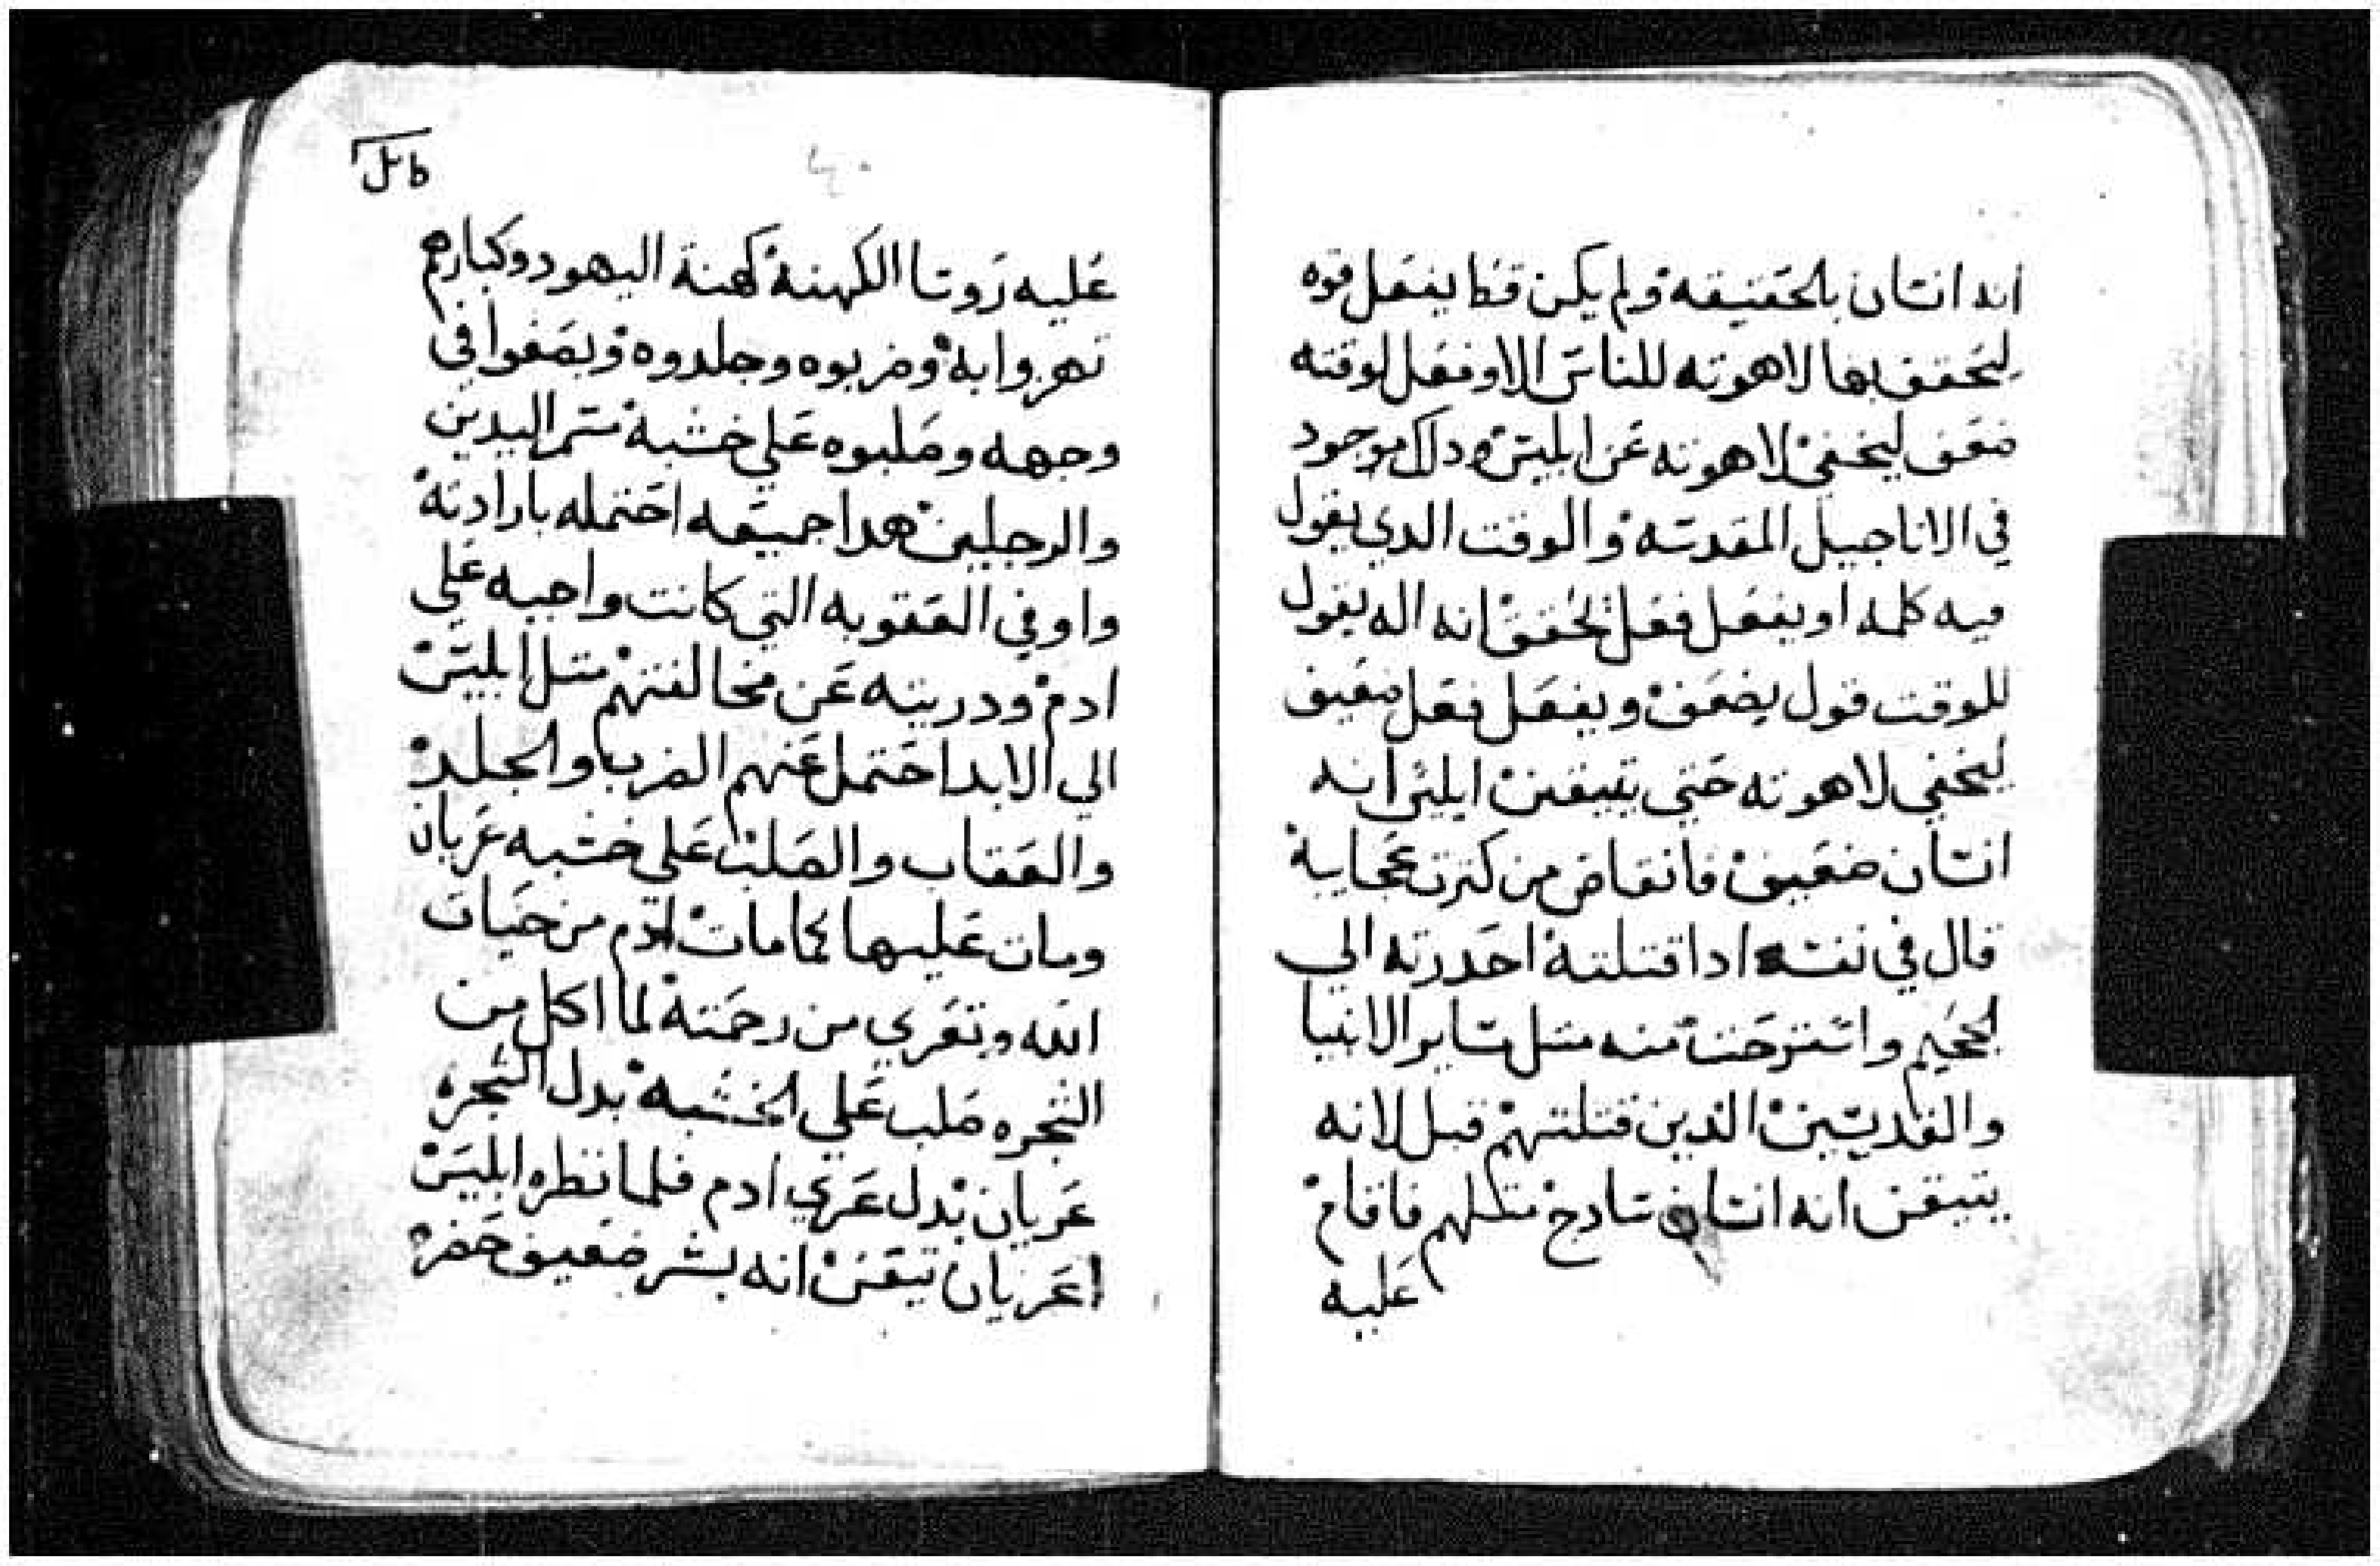 انه انسان بالحقيقه ولم يكن قط يفعل قوه
ليحقق بها لاهوته للناس الا وفعل لوقته
ضعف ليخفي لاهوته عن ابليس ودلك موجود
في الاناجيل المقدسه والوقت الدي يقول
فيه كلمه او يفعل فعل يحقق انه اله يقول
للوقت قول يضعف ويفعل فعل ضعيف
ليخفي لاهوته حتي تيقن ابليس انه
انسان ضعيف فانغاض من كترت عجايبه
قال في نفسه ادا قتلته احدرته الي
الجحيم واسترحت منه متل ساير الانبيا
والقديسين الذين قتلتهم قبل لانه
يتيقن انه انسان سادج متلهم فاقام
عليه
عليه روسا الكهنة كهنة اليهود وكبارهم
تهزوا به وضربوه وجلدوه وبصقوا في
وجهه وصلبوه علي خشبة سمر اليدين
والرجلين هدا جميعه احتمله بارادته
واوفي العقوبه التي كانت واجبه علي
ادم ودريته عن مخالفتهم متل ابليس
الي الابد احتمل عنهم الضرب والجلد
والعقاب والصلب علي خشبه عريان
ومات عليها كما مات ادم من حيات
الله وتعري من رحمته لما اكل من
الشجره صلب علي الخشبه بدل الشجره
عريان بدل عري ادم فلما نظره ابليس
عريان تيقن انه بشر ضعيف حضر